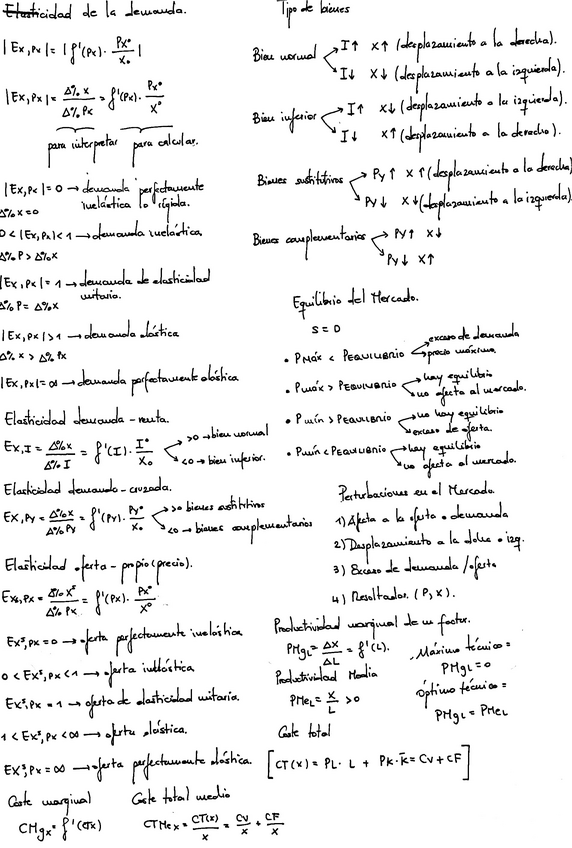 Elasticidad de la demanda.
|Ex,Px| = |f'(Px) · Px°/X₀|
|Ex,Px| = Δ%x/Δ%Px = f'(Px) · Px°/X°
para interpretar para calcular.
|Ex,Px| = 0 → demanda perfectamente
inelástica o rígida.
Δ%x=0
0 < |Ex,Px| < 1 → demanda inelástica
Δ%P > Δ%x
|Ex,Px| = 1 → demanda de elasticidad
unitaria.
Δ%P = Δ%x
|Ex,Px| > 1 → demanda elástica
Δ%x > Δ%Px
|Ex,Px| = ∞ → demanda perfectamente elástica
Elasticidad demanda-renta.
Ex,I = Δ%x/Δ%I = f'(I) · I°/X₀
>0 → bien normal
<0 → bien inferior.
Elasticidad demanda-cruzada.
Ex,Py = Δ%x/Δ%Py = f'(Py) · Py°/X₀
>0 bienes sustitutivos
<0 → bienes complementarios
Elasticidad oferta-propio (precio).
Exs,Px = Δ%xˢ/Δ%Px = f'(Px) · Px°/X°
Exˢ,Px = 0 → oferta perfectamente inelástica
0 < Exˢ,Px < 1 → oferta inelástica
Exˢ,Px = 1 → oferta de elasticidad unitaria.
1 < Exˢ,Px < ∞ → oferta elástica.
Exˢ,Px = ∞ → oferta perfectamente elástica.
Coste marginal
CMgx = f'(CTx)
Coste total medio
CTMex = CT(x)/x = CV/x + CF/x
Tipo de bienes
Bien normal
I↑ X↑ (desplazamiento a la derecha).
I↓ X↓ (desplazamiento a la izquierda).
Bien inferior
I↑ X↓ (desplazamiento a la izquierda).
I↓ X↑ (desplazamiento a la derecha).
Bienes sustitutivos
Py↑ X↑ (desplazamiento a la derecha)
Py↓ X↓ (desplazamiento a la izquierda).
Bienes complementarios
Py↑ X↓
Py↓ X↑
Equilibrio del Mercado.
S = D
• PMÁX < PEQUILIBRIO
exceso de demanda
precio máximo.
• PMÁX > PEQUILIBRIO
hay equilibrio
no afecta al mercado.
• PMÍN > PEQUILIBRIO
no hay equilibrio
exceso de oferta.
• PMÍN < PEQUILIBRIO
hay equilibrio
no afecta al mercado.
Perturbaciones en el Mercado
1) Afecta a la oferta o demanda
2) Desplazamiento a la dcha o izq.
3) Exceso de demanda/oferta
4) Resultados. (P, X).
Productividad marginal de un factor.
PMgL = ΔX/ΔL = f'(L).
Productividad Media
PMeL = X/L > 0
Máximo técnico =
PMgL = 0
óptimo técnico =
PMgL = PMeL
Coste total
[CT(x) = PL · L + PK · K̄ = CV + CF]